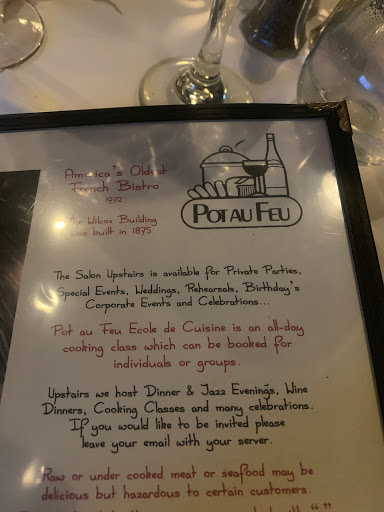 America's Oldest
French Bistro
1972
Wilcox Building
was built in 1875
POT AU FEU
The Salon Upstairs is available for Private Parties,
Special Events, Weddings, Rehearsals, Birthday's
Corporate Events and Celebrations...
Pot au Feu Ecole de Cuisine is an all-day
cooking class which can be booked for
individuals or groups.
Upstairs we host Dinner & Jazz Evenings, Wine
Dinners, Cooking Classes and many celebrations.
If you would like to be invited please
leave your email with your server.
Raw or under cooked meat or seafood may be
delicious but hazardous to certain customers.